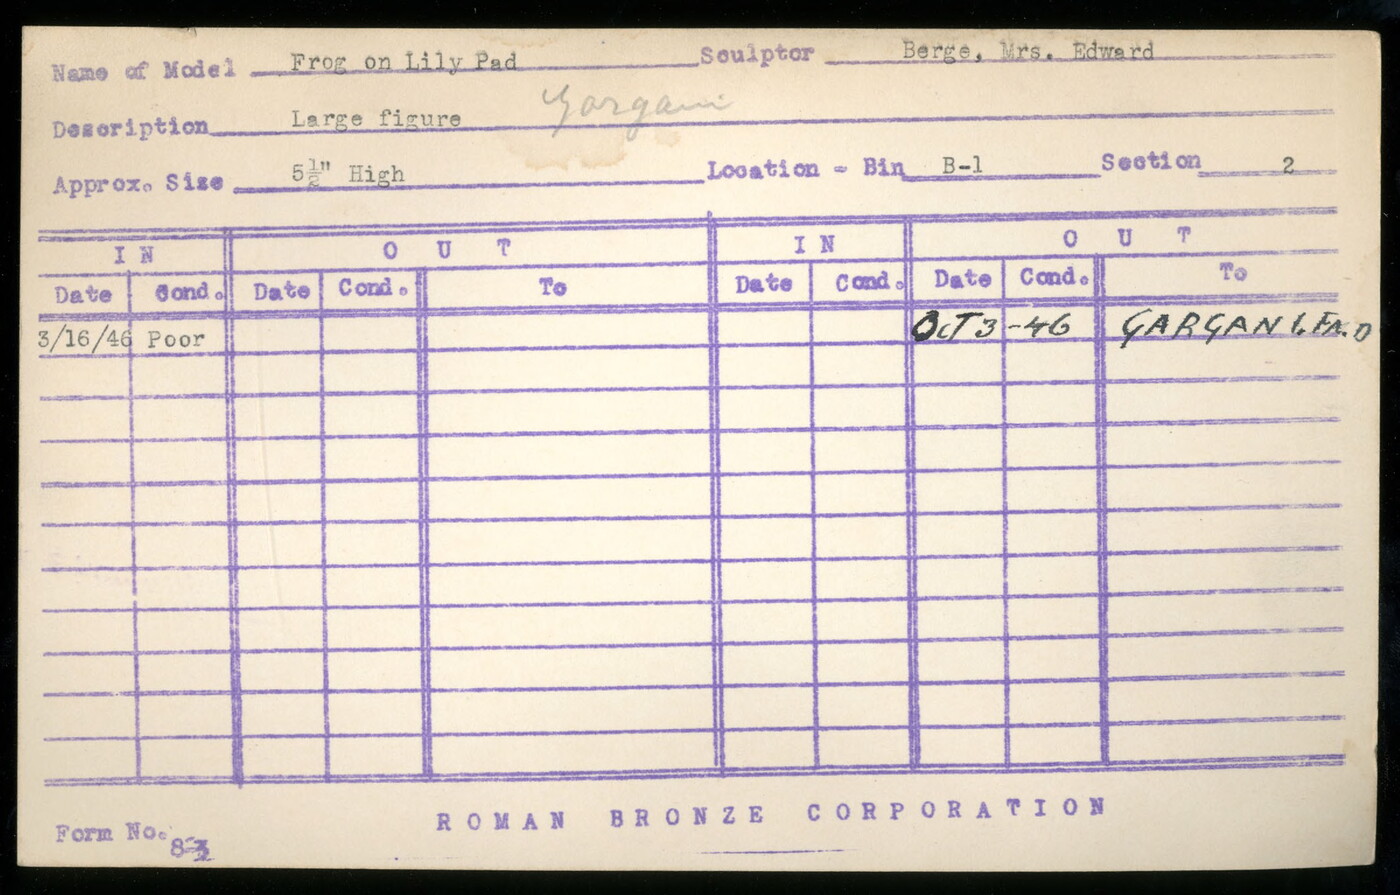 Name of Model Frog on Lily Pad Sculptor Berge, Mrs. Edward
Gargani
Description Large figure
Approx. Size 5½" High Location - Bin B-1 Section 2
IN OUT IN OUT
Date Cond. Date Cond. To Date Cond. Date Cond. To
3/16/46 Poor OCT 3-46 GARGANI.
ROMAN BRONZE CORPORATION
Form No.